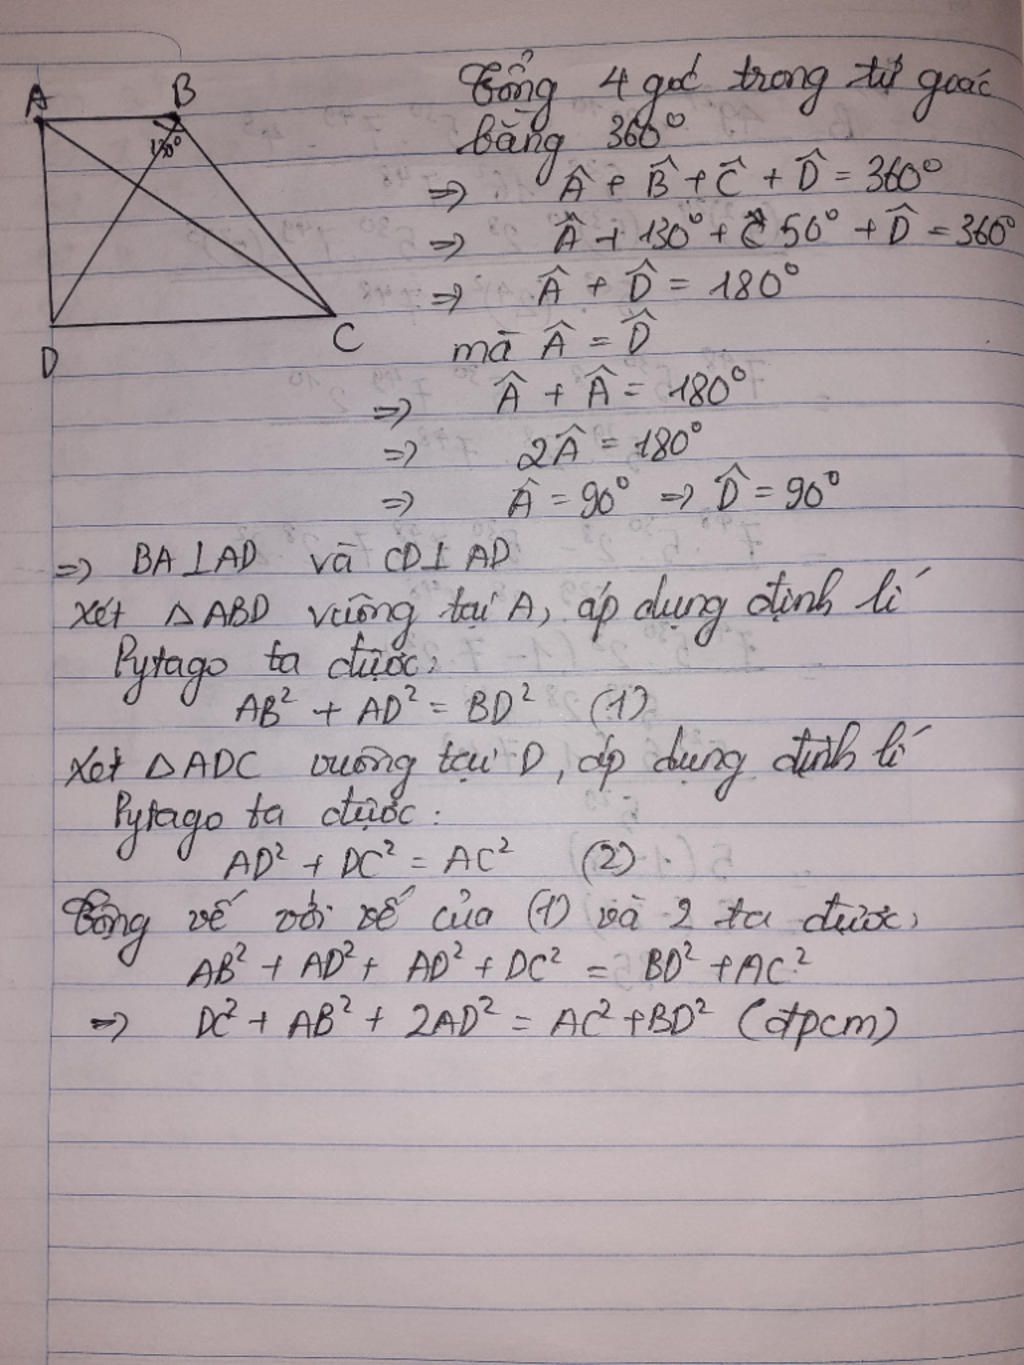 A
B
130°
D
C
Tổng 4 góc trong tứ guác
bằng 360°
⇒ Â + B̂ + Ĉ + D̂ = 360°
⇒ Â + 130° + 50° + D̂ = 360°
⇒ Â + D̂ = 180°
mà Â = D̂
⇒ Â + Â = 180°
⇒ 2Â = 180°
⇒ Â = 90° ⇒ D̂ = 90°
⇒ BA ⊥ AD và CD ⊥ AD
Xét △ABD vuông tại A, áp dụng định lí
Pytago ta được:
AB² + AD² = BD² (1)
Xét △ADC vuông tại D, áp dụng định lí
Pytago ta được:
AD² + DC² = AC² (2)
Cộng vế với vế của (1) và 2 ta được:
AB² + AD² + AD² + DC² = BD² + AC²
⇒ DC² + AB² + 2AD² = AC² + BD² (đpcm)